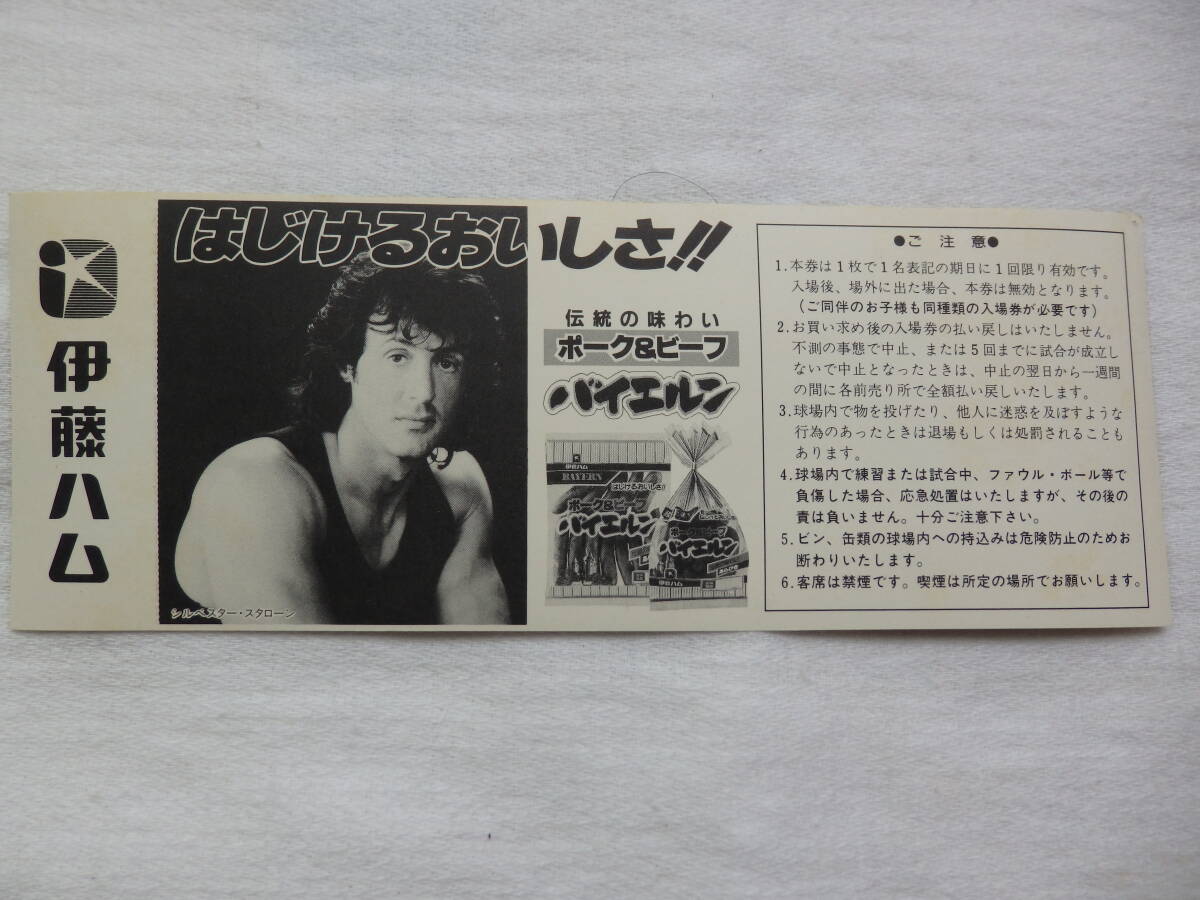 伊藤ハム
はじけるおいしさ!!
シルベスター・スタローン
伝統の味わい
ポーク&ビーフ
バイエルン
伊藤ハム
BAYERN
はじけるおいしさ!
ポーク&ビーフ
バイエルン
ポーク&ビーフ
バイエルン
伊藤ハム
●ご注意●
1.本券は1枚で1名表記の期日に1回限り有効です。
入場後、場外に出た場合、本券は無効となります。
(ご同伴のお子様も同種類の入場券が必要です)
2.お買い求め後の入場券の払い戻しはいたしません。
不測の事態で中止、または5回までに試合が成立し
ないで中止となったときは、中止の翌日から一週間
の間に各前売り所で全額払い戻しいたします。
3.球場内で物を投げたり、他人に迷惑を及ぼすような
行為のあったときは退場もしくは処罰されることも
あります。
4.球場内で練習または試合中、ファウル・ボール等で
負傷した場合、応急処置はいたしますが、その後の
責は負いません。十分ご注意下さい。
5.ビン、缶類の球場内への持込みは危険防止のためお
断わりいたします。
6.客席は禁煙です。喫煙は所定の場所でお願いします。